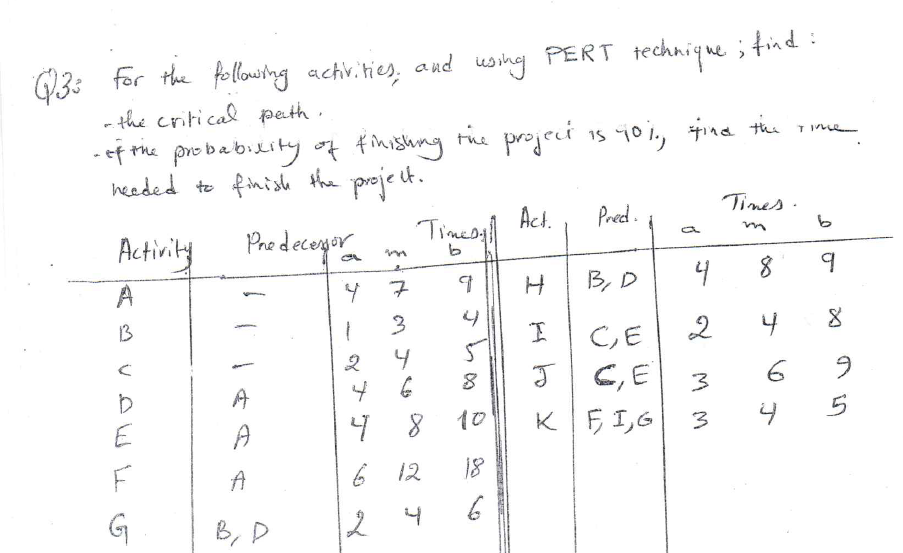 Q3: For the following activities, and using PERT technique; find:
- the critical path.
- if the probability of finishing the project is 90%, find the time
needed to finish the project.
Activity Predecessor Times. Act. Pred. Times.
a m b a m b
A — 4 7 9 H B, D 4 8 9
B — 1 3 4 I C, E 2 4 8
C — 2 4 5 J C, E 3 6 9
D A 4 6 8 K F, I, G 3 4 5
E A 4 8 10
F A 6 12 18
G B, D 2 4 6